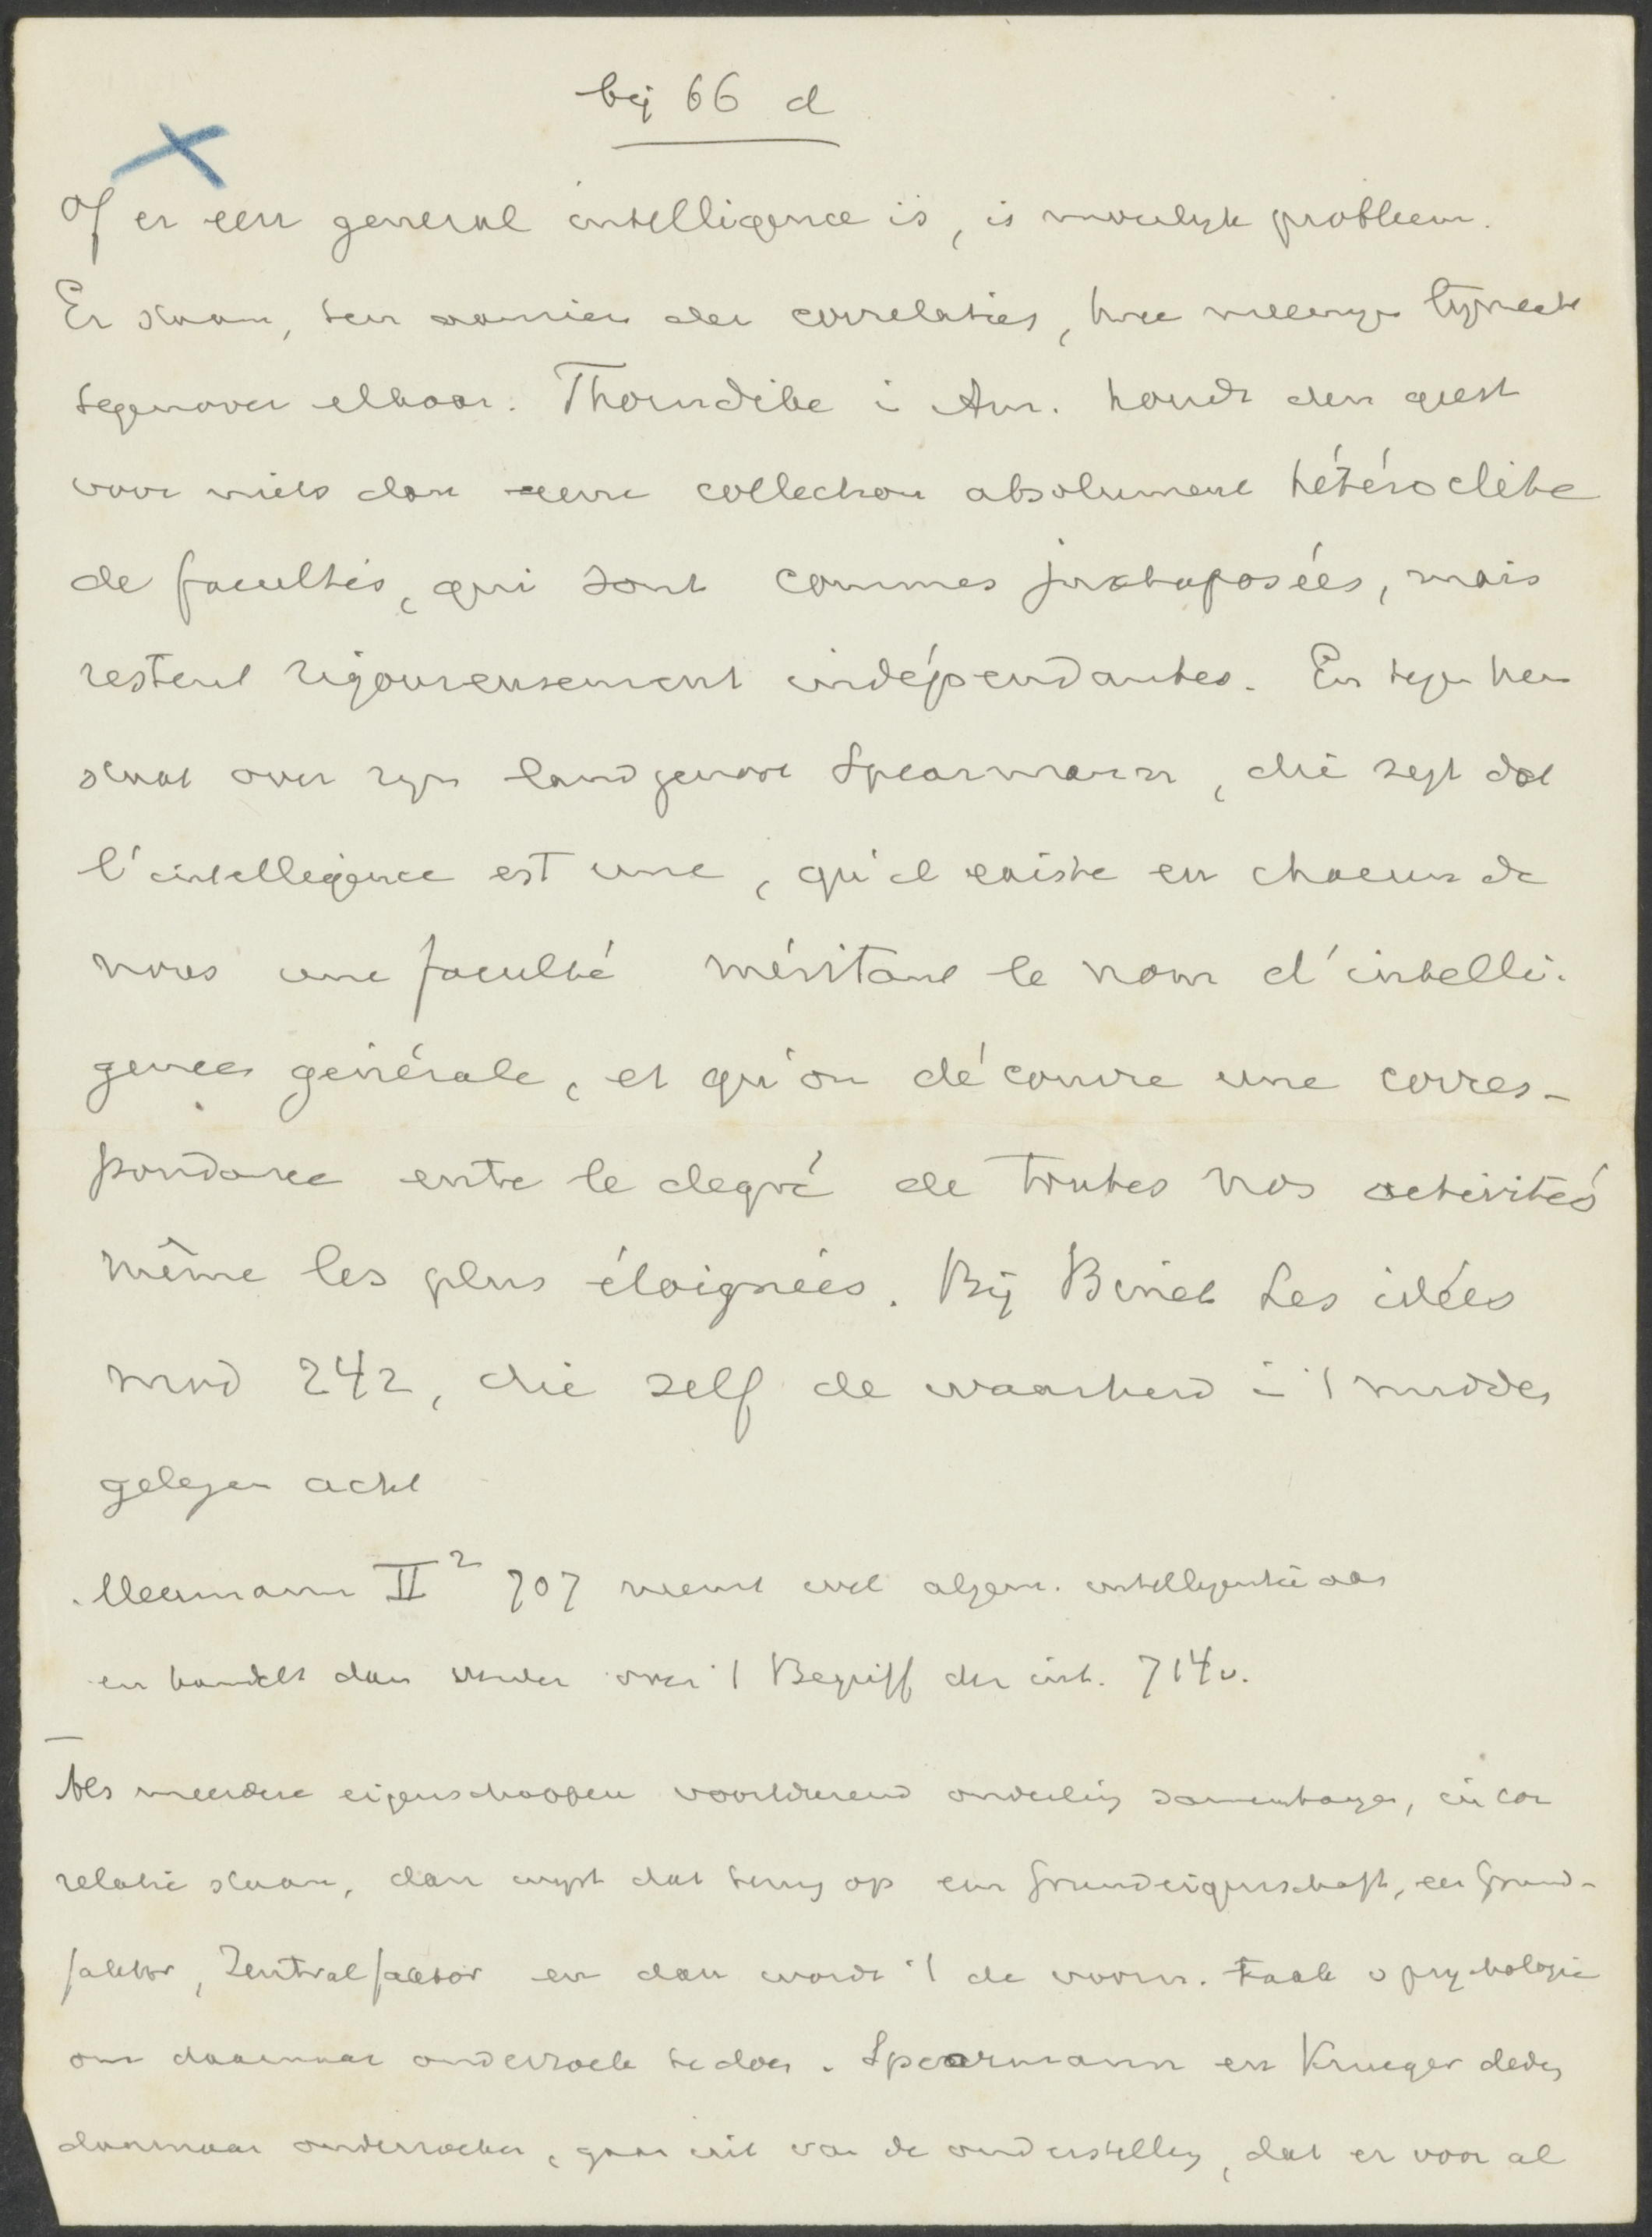 bij 66 d
Of er een general intelligence is, is moeilijk probleem.
Er staan, ten aanzien der correlaties, twee meeningen lijnrecht
tegenover elkaar. Thorndike i Am. houdt den geest
voor niets dan eene collection absolument hétéroclite
de facultés, qui sont commes juxtaposées, mais
restent rigoureusement indépendantes. En tegen hem
staat over zijn landgenoot Spearmann, die zegt dat
l'intelligence est une, qu'il existe en chacun de
nous une faculté méritant le nom d'intelli-
gence générale, et qu'on découvre une corres-
pondance entre le degré de toutes nos activités
même les plus éloignées. Bij Binet Les idées
mod 242, die zelf de waarheid i 't midden
gelegen acht
Meumann II² 707 neemt wel algem. intelligentie aan
en handelt dan verder over 't Begriff der int. 714v.
Als meerdere eigenschappen voortdurend onderling samenhangen, in cor
relatie staan, dan wijst dat terug op een Grundeigenschaft, een Grund-
faktor, Zentralfaktor en dan wordt 't de voorn. taak v psychologie
om daarnaar onderzoek te doen. Spearmann en Krueger deden
daarnaar onderzoeken, gaan uit van de onderstelling, dat er voor al